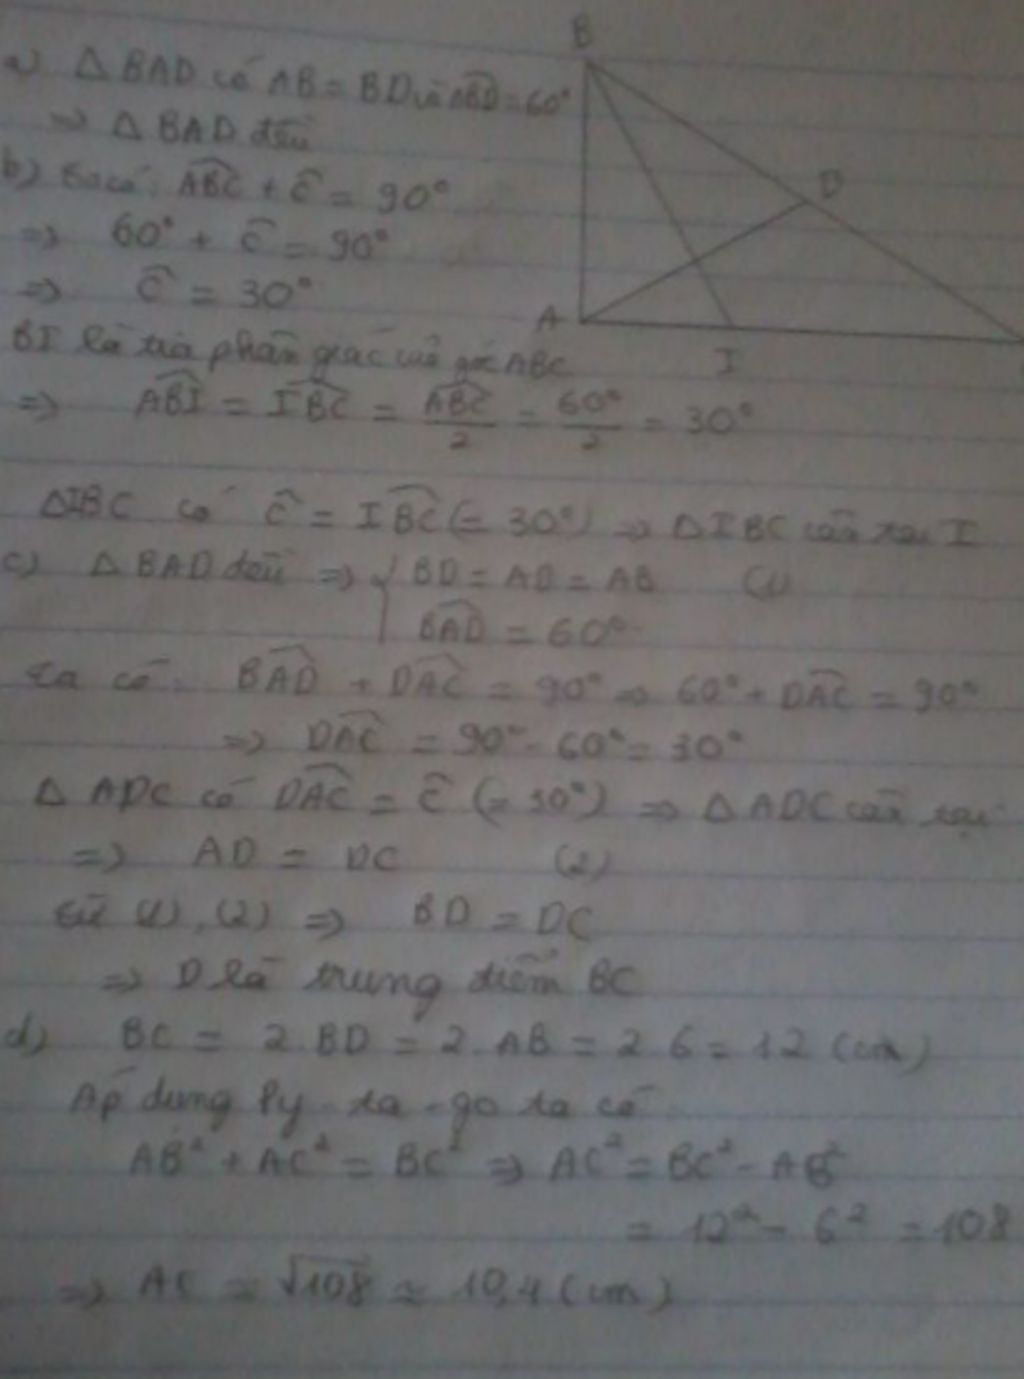 B
a) △BAD có AB = BD và \widehat{ABD} = 60°
=> △BAD đều
D
b) Ta có: \widehat{ABC} + \widehat{C} = 90°
=> 60° + \widehat{C} = 90°
=> \widehat{C} = 30°
A
I
BI là tia phân giác của góc ABC
=> \widehat{ABI} = \widehat{IBC} = \frac{\widehat{ABC}}{2} = \frac{60°}{2} = 30°
△IBC có \widehat{C} = \widehat{IBC} (= 30°) => △IBC cân tại I
c) △BAD đều => { BD = AD = AB (1)
\widehat{BAD} = 60°
ta có: \widehat{BAD} + \widehat{DAC} = 90° => 60° + \widehat{DAC} = 90°
=> \widehat{DAC} = 90° - 60° = 30°
△ADC có \widehat{DAC} = \widehat{C} (= 30°) => △ADC cân tại
=> AD = DC (2)
từ (1), (2) => BD = DC
=> D là trung điểm BC
d) BC = 2.BD = 2.AB = 2.6 = 12 (cm)
Áp dụng Py-ta-go ta có
AB² + AC² = BC² => AC² = BC² - AB²
= 12² - 6² = 108
=> AC = √108 ≈ 10,4 (cm)